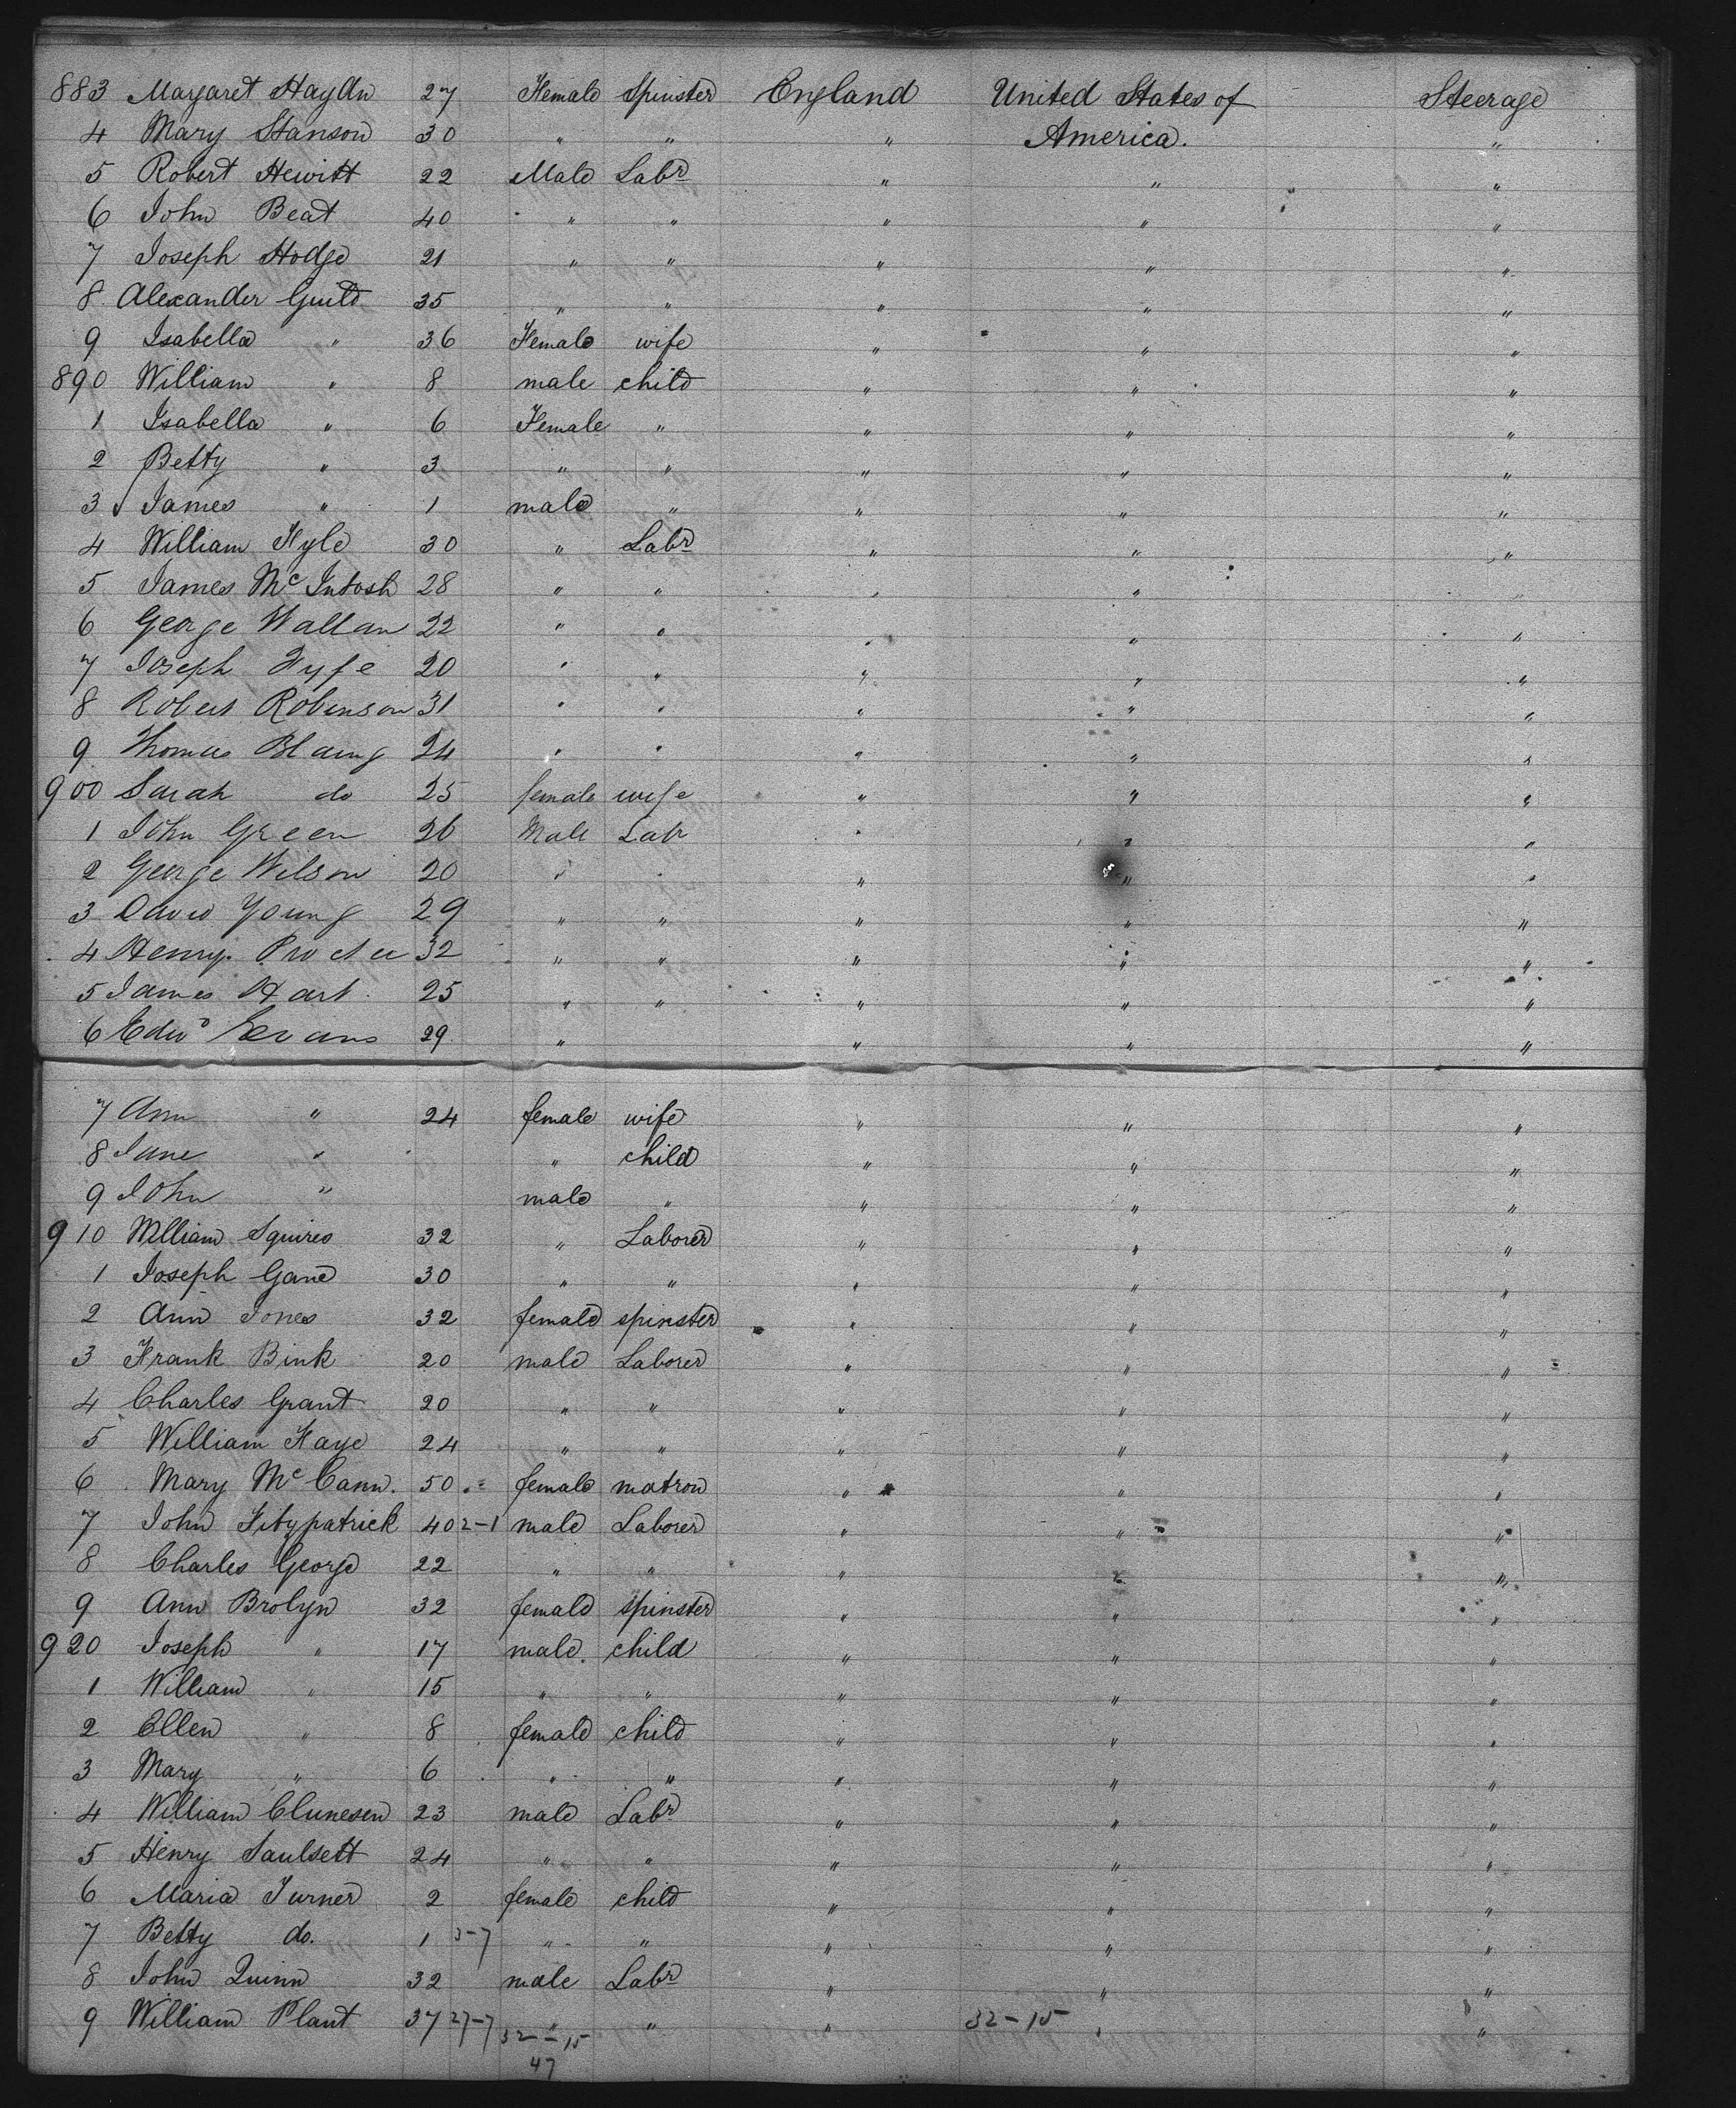 883 Margaret Haydn 27 Female Spinster England United States of Steerage
4 Mary Stanson 30 " " " America. "
5 Robert Hewitt 22 Male Labr " " "
6 John Beat 40 " " " " "
7 Joseph Hodge 21 " " " " "
8 Alexander Guild 35 " " " " "
9 Isabella " 36 Female wife " " "
890 William " 8 male child " " "
1 Isabella " 6 Female " " " "
2 Betty " 3 " " " " "
3 James " 1 male " " " "
4 William Kyle 30 " Labr " " "
5 James McIntosh 28 " " " " "
6 George Wallan 22 " " " " "
7 Joseph Fyfe 20 " " " " "
8 Robert Robinson 31 " " " " "
9 Thomas Blaing 24 " " " " "
900 Sarah do 25 female wife " " "
1 John Green 26 Male Labr " " "
2 George Wilson 20 " " " " "
3 David Young 29 " " " " "
4 Henry Procter 32 " " " " "
5 James Hart 25 " " " " "
6 Edwd Evans 29 " " " "
7 Ann " 24 female wife " " "
8 Jane " " child " " "
9 John " male " " " "
910 William Squires 32 " Laborer " " "
1 Joseph Gane 30 " " " " "
2 Ann Jones 32 female spinster " " "
3 Frank Bink 20 male Laborer " " "
4 Charles Grant 20 " " " " "
5 William Kaye 24 " " " " "
6 Mary McCann. 50 female matron " " "
7 John Fitzpatrick 40 2-1 male Laborer " " "
8 Charles George 22 " " " " "
9 Ann Brolyn 32 female spinster " " "
920 Joseph " 17 male. child " " "
1 William " 15 " " " " "
2 Ellen " 8 female child " " "
3 Mary " 6 " " " " "
4 William Clunesen 23 male Labr " " "
5 Henry Saulsett 24 " " " " "
6 Maria Turner 2 female child " " "
7 Betty do. 1 3-7 " " " " "
8 John Quinn 32 male Labr " " "
9 William Plant 37 27-7 " " " 32-15 " "
32-15
47